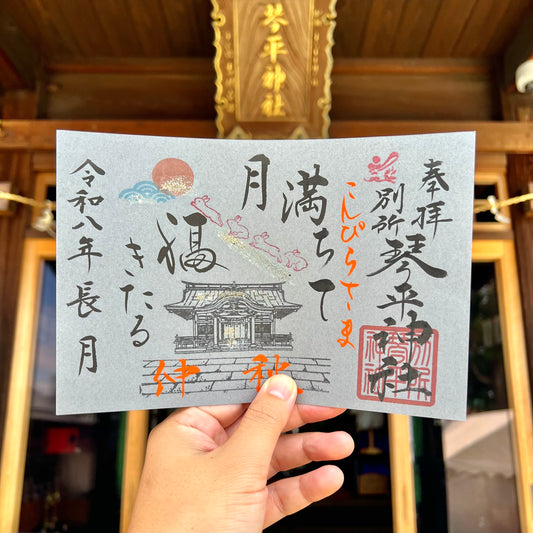 琴平神社
奉拝
別所琴平神社
こんぴらさま
満ちて
月
福
きたる
仲秋
令和八年長月